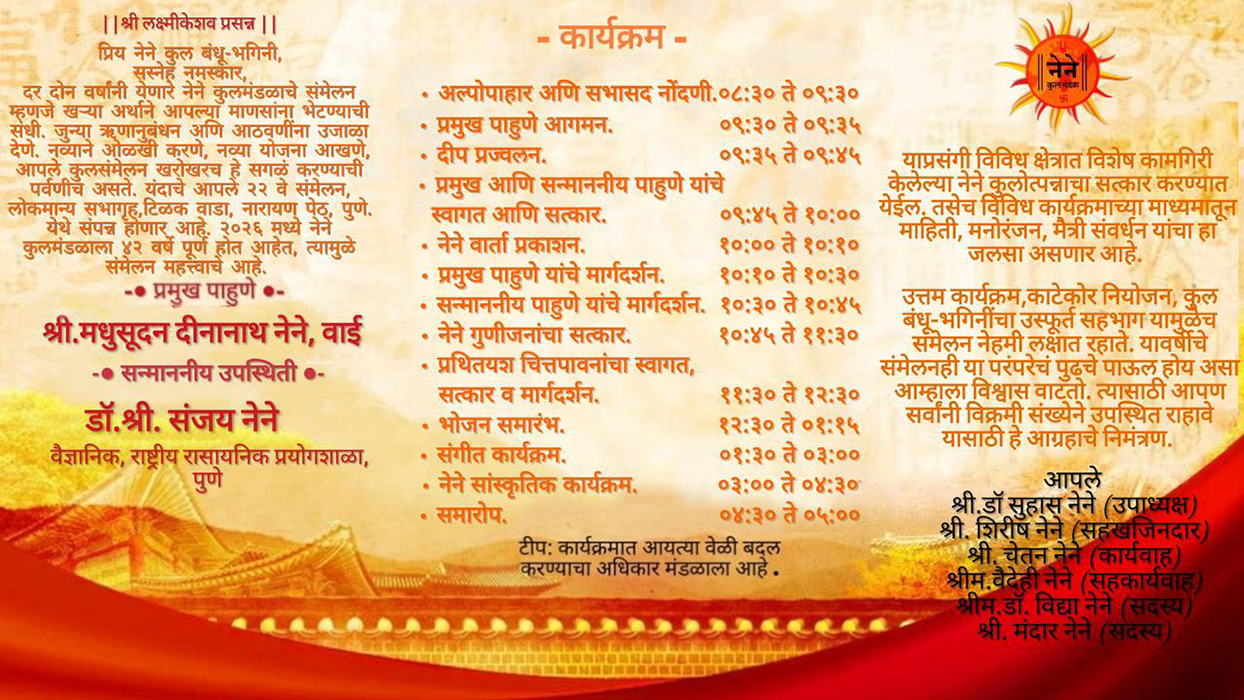 ||श्री लक्ष्मीकेशव प्रसन्न ||
प्रिय नेने कुल बंधू-भगिनी,
सस्नेह नमस्कार,
दर दोन वर्षांनी येणारे नेने कुलमंडळाचे संमेलन
म्हणजे खऱ्या अर्थाने आपल्या माणसांना भेटण्याची
संधी. जुन्या ऋणानुबंधन अणि आठवणींना उजाळा
देणे. नव्याने ओळखी करणे, नव्या योजना आखणे,
आपले कुलसंमेलन खरोखरच हे सगळं करण्याची
पर्वणीच असते. यंदाचे आपले २२ वे संमेलन,
लोकमान्य सभागृह,टिळक वाडा, नारायण पेठ, पुणे.
येथे संपन्न होणार आहे. २०२६ मध्ये नेने
कुलमंडळाला ४२ वर्षे पूर्ण होत आहेत, त्यामुळे
संमेलन महत्त्वाचे आहे.
-● प्रमुख पाहुणे ●-
श्री.मधुसूदन दीनानाथ नेने, वाई
-● सन्माननीय उपस्थिती ●-
डॉ.श्री. संजय नेने
वैज्ञानिक, राष्ट्रीय रासायनिक प्रयोगशाळा,
पुणे
- कार्यक्रम -
• अल्पोपाहार अणि सभासद नोंदणी.०८:३० ते ०९:३०
• प्रमुख पाहुणे आगमन. ०९:३० ते ०९:३५
• दीप प्रज्वलन. ०९:३५ ते ०९:४५
• प्रमुख आणि सन्माननीय पाहुणे यांचे
स्वागत आणि सत्कार. ०९:४५ ते १०:००
• नेने वार्ता प्रकाशन. १०:०० ते १०:१०
• प्रमुख पाहुणे यांचे मार्गदर्शन. १०:१० ते १०:३०
• सन्माननीय पाहुणे यांचे मार्गदर्शन. १०:३० ते १०:४५
• नेने गुणीजनांचा सत्कार. १०:४५ ते ११:३०
• प्रथितयश चित्तपावनांचा स्वागत,
सत्कार व मार्गदर्शन. ११:३० ते १२:३०
• भोजन समारंभ. १२:३० ते ०१:१५
• संगीत कार्यक्रम. ०१:३० ते ०३:००
• नेने सांस्कृतिक कार्यक्रम. ०३:०० ते ०४:३०
• समारोप. ०४:३० ते ०५:००
टीप: कार्यक्रमात आयत्या वेळी बदल
करण्याचा अधिकार मंडळाला आहे .
नेने
कुलमंडळ
याप्रसंगी विविध क्षेत्रात विशेष कामगिरी
केलेल्या नेने कुलोत्पन्नाचा सत्कार करण्यात
येईल. तसेच विविध कार्यक्रमाच्या माध्यमातून
माहिती, मनोरंजन, मैत्री संवर्धन यांचा हा
जलसा असणार आहे.
उत्तम कार्यक्रम,काटेकोर नियोजन, कुल
बंधू-भगिनींचा उस्फूर्त सहभाग यामुळेच
संमेलन नेहमी लक्षात रहाते. यावर्षीचे
संमेलनही या परंपरेचं पुढचे पाऊल होय असा
आम्हाला विश्वास वाटतो. त्यासाठी आपण
सर्वांनी विक्रमी संख्येने उपस्थित राहावे
यासाठी हे आग्रहाचे निमंत्रण.
आपले
श्री.डॉ सुहास नेने (उपाध्यक्ष)
श्री. शिरीष नेने (सहखजिनदार)
श्री. चेतन नेने (कार्यवाह)
श्रीम.वैदेही नेने (सहकार्यवाह)
श्रीम.डॉ. विद्या नेने (सदस्य)
श्री. मंदार नेने (सदस्य)